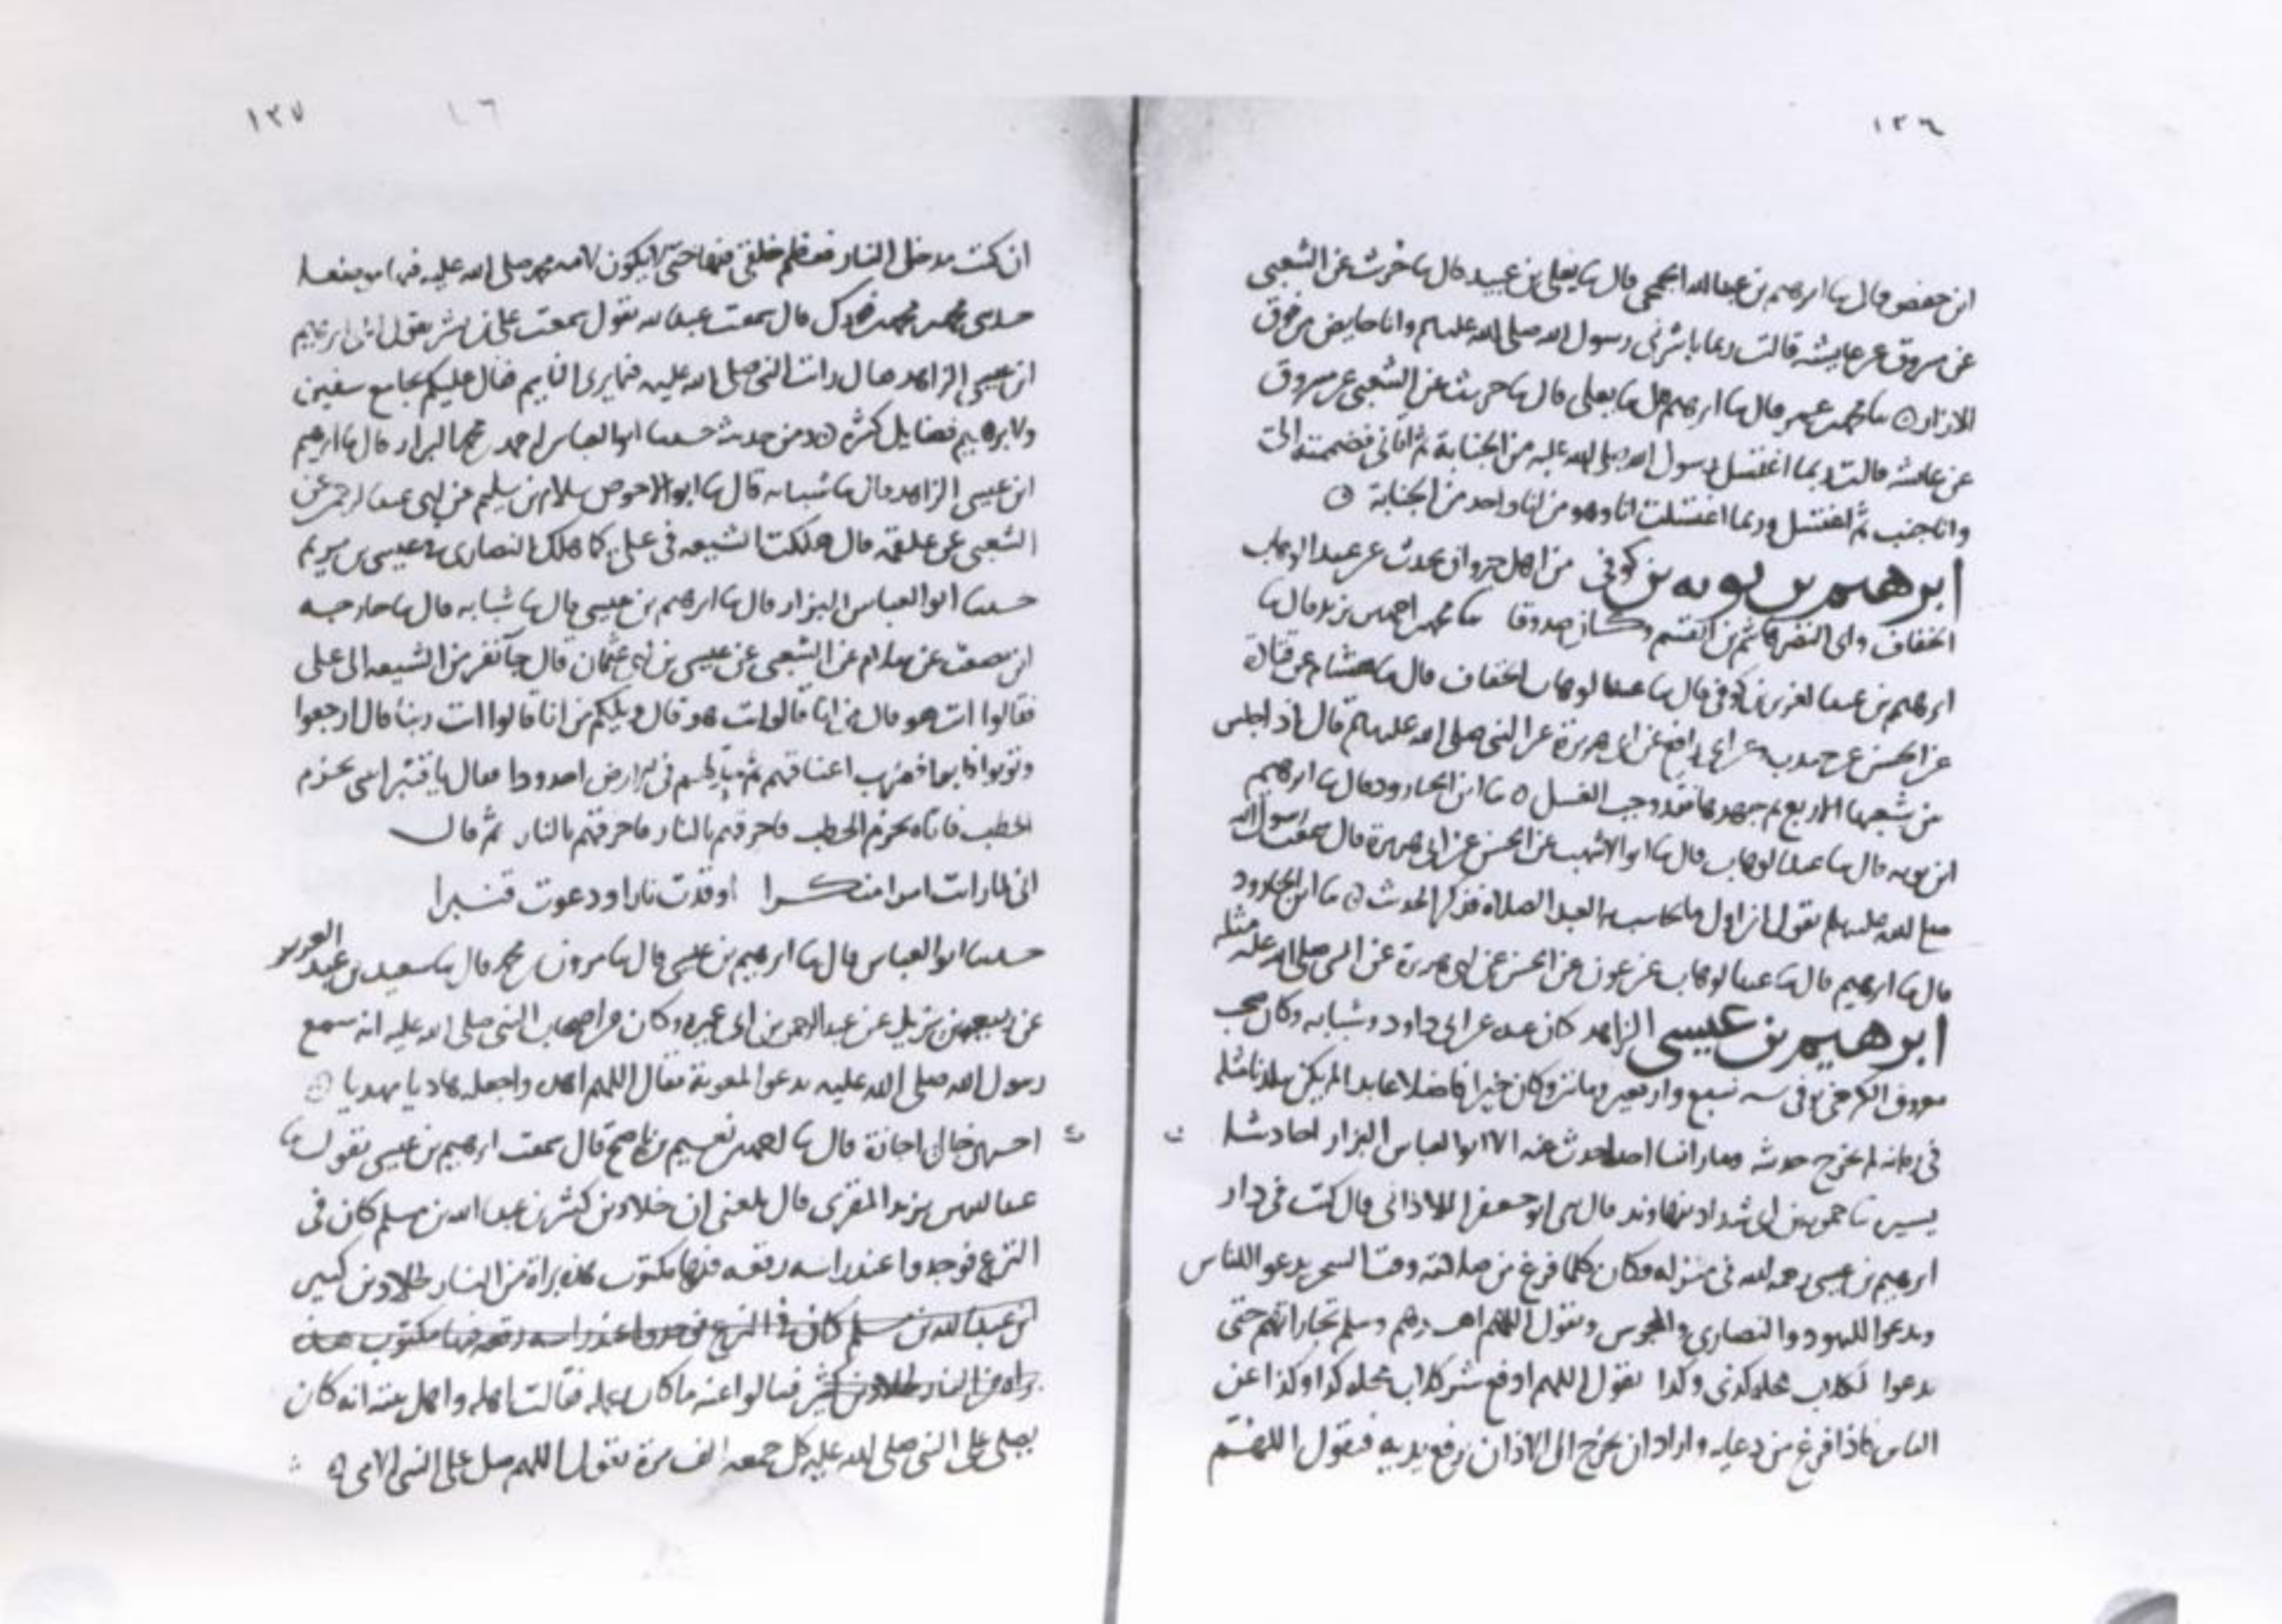 ١٣٦
ابن حفص قال ثنا ابرهيم بن عبدالله الجمحي قال ثنا يعلى بن عبيد قال ثنا حريث عن الشعبي
عن مسروق عن عايشه قالت ربما باشرنى رسول الله صلى الله عليه وسلم وانا حايض من فوق
الازار ثنا محمد بن عمر قال ثنا ابرهيم قال ثنا يعلى قال ثنا حريث عن الشعبي عن مسروق
عن عائشه قالت ربما اغتسل رسول الله صلى الله عليه من الجنابة ثم اتانى فضممته الى
وانا جنب ثم اغتسل وربما اغتسلت انا وهو من انا واحد من الجنابة
ابرهيم بن بويه بن كوفى من اهل جروان يحدث عن عبد الوهاب
الخفاف وابى النضر هاشم بن القسم وكان صدوقا ثنا محمد بن احمد بن يزيد قال ثنا
ابرهيم بن عبد العزيز بن كوفى قال ثنا عبد الوهاب الخفاف قال ثنا هشام عن قتادة
عن الحسن عن ابى رافع عن ابى هريرة عن النبى صلى الله عليه وسلم قال اذا جلس
من شعبها الاربع ثم جهدها فقد وجب الغسل ثنا ابن الجارود قال ثنا ابرهيم
ابن بويه قال ثنا عبد الوهاب قال ثنا ابو الاشهب عن الحسن عن ابى هريرة قال سمعت رسول الله
صلى الله عليه وسلم يقول ان اول ما يحاسب به العبد الصلاة فذكر الحديث ثنا ابن الجارود
قال ثنا ابرهيم قال ثنا عبد الوهاب عن عون عن الحسن عن ابى هريرة عن النبى صلى الله عليه مثله
ابرهيم بن عيسى الزاهد كان عنده عن ابى داود وشبابه وكان صحب
معروف الكرخى توفى سنه سبع واربعين ومائتين وكان خيرا فاضلا عابدا لم يكن ببلدنا مثله
فى زمانه لم يخرج حديثه وما راينا احدا حدث عنه الا ابو العباس البزار احاديث
يسيرة ثنا بن ابى شداد بنهاوند قال ثنى ابو جعفر الاذانى قال كنت فى دار
ابرهيم بن عيسى رحمه الله فى منزله وكان كلما فرغ من صلاته وقت السحر يدعو اللناس
ويدعوا لليهود والنصارى والمجوس ويقول اللهم اهدهم وسلم تجاراتهم حتى
يدعوا لكلاب محله كذى وكذا يقول اللهم ادفع شر كلاب محله كذا وكذا عن
الناس فاذا فرغ من دعايه واراد ان يخرج الى الاذان رفع يديه فيقول اللهم
١٣٧
ان كنت مدخلى النار فعظم خلقى فيها حتى لا يكون لامة محمد صلى الله عليه فيها
حدثنى محمد بن محمد بن فورك قال سمعت عبد الله يقول سمعت على بن بشر يقول ابرهيم
ابن عيسى الزاهد قال رايت النبى صلى الله عليه فيما يرى النايم فقال عليكم بجامع سفين
ولابرهيم فضايل كثيرة ومن حديثه حدثنا ابو العباس احمد بن محمد البزار قال ثنا ابرهيم
ابن عيسى الزاهد قال ثنا شبابه قال ثنا ابو الاحوص سلام بن سليم عن ابى عبد الرحمن عن
الشعبى عن علقمه قال هلكت الشيعه فى على كما هلك النصارى فى عيسى بن مريم
حدثنا ابو العباس البزار قال ثنا ابرهيم بن عيسى قال ثنا شبابه قال ثنا خارجه
ابن مصعب عن سلام عن الشعبى عن عيسى بن ابى عثمان قال جآ نفر من الشيعه الى على
فقالوا انت هو قال من انا قالوا انت هو قال ويلكم من انا قالوا انت ربنا قال ارجعوا
وتوبوا فابوا فضرب اعناقهم ثم خد لهم فى الارض اخدودا فقال يا قنبر ايتنى بحزم
الحطب فاتاه بحزم الحطب فاحرقهم بالنار فاحرقهم بالنار ثم قال
انى لما رايت امرا منكرا اوقدت نارا ودعوت قنبرا
حدثنا ابو العباس قال ثنا ابرهيم بن عيسى قال ثنا مرون بن محمد قال ثنا سعيد بن عبد العزيز
عن ربيعه بن يزيد عن عبد الرحمن بن ابى عميره وكان من اصحاب النبى صلى الله عليه انه سمع
رسول الله صلى الله عليه يدعو لمعوية فقال اللهم اهده واجعله هاديا مهديا
خالى اجازة قال ثنا احمد بن نعيم بن ناصح قال سمعت ابرهيم بن عيسى يقول ثنا
عبد الله بن يزيد المقرى قال بلغنى ان خلاد بن كثير بن عبد الله بن مسلم كان فى
النزع فوجدوا عند راسه رقعه فيها مكتوب هذه براة من النار لخلاد بن كثير
ابن عبد الله بن مسلم كان فى النزع فوجدوا عند راسه رقعه فيها مكتوب هذه
براه من النار لخلاد بن كثير فسالوا عنه ما كان عمله فقالت اهله واهل بيته انه كان
يصلى على النبى صلى الله عليه كل جمعه الف مرة يقول اللهم صل على النبى الامى